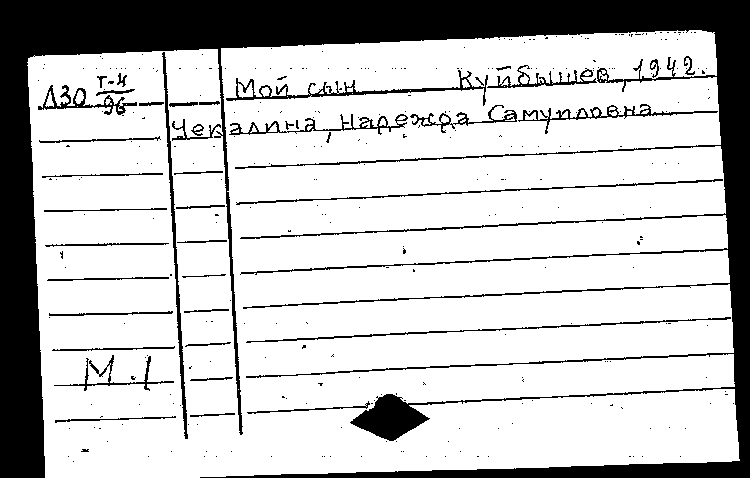 Л30 Т-4/96 Мой сын Куйбышев, 1942.
Чекалина, Надежда Самуиловна
М.1